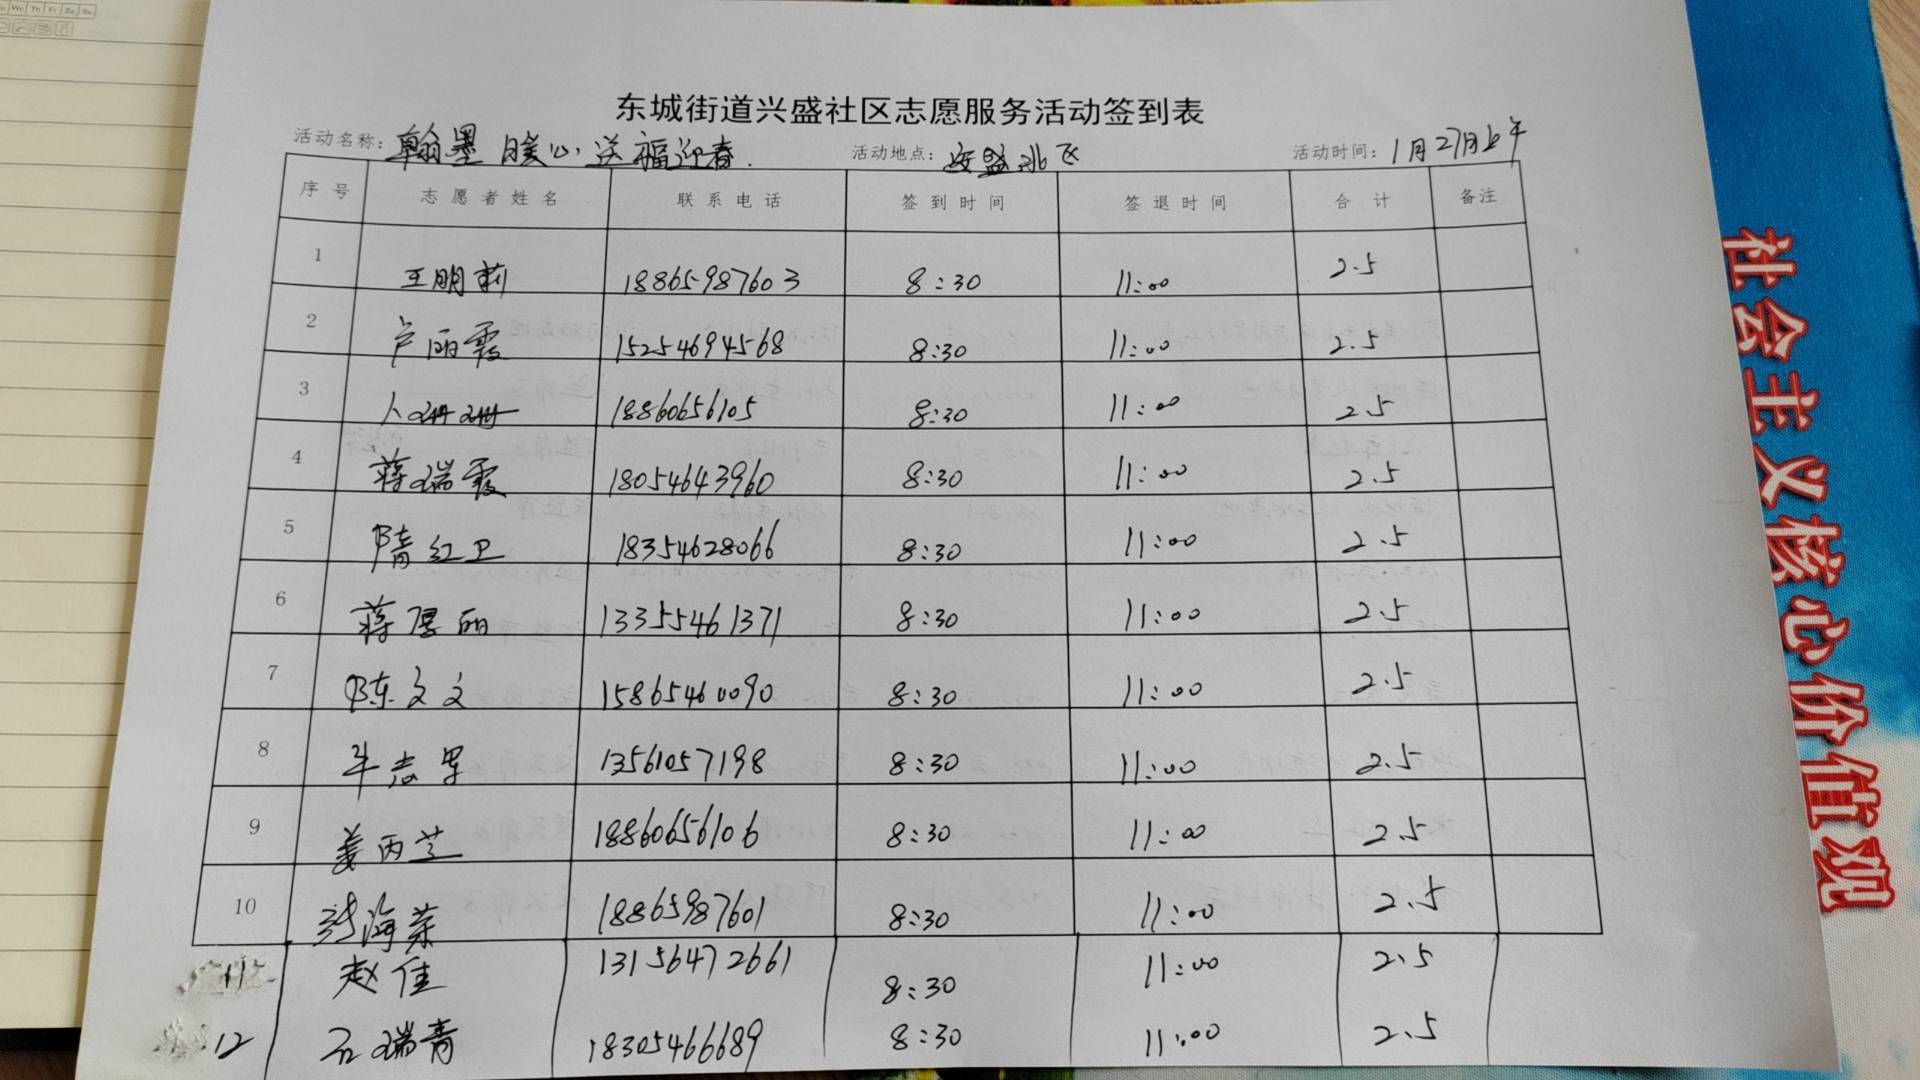 东城街道兴盛社区志愿服务活动签到表
活动名称: 翰墨暖心 送福迎春. 活动地点: 活动时间: 1月27日上午
序号 志愿者姓名 联系电话 签到时间 签退时间 合计 备注
1 王明莉 18865987603 8:30 11:00 2.5
2 卢丽霞 15254694568 8:30 11:00 2.5
3 人珊珊 18860656105 8:30 11:00 2.5
4 蒋瑞霞 18054643960 8:30 11:00 2.5
5 隋红卫 18354628066 8:30 11:00 2.5
6 蒋厚丽 13355461371 8:30 11:00 2.5
7 陈文文 15865460090 8:30 11:00 2.5
8 牛志军 13561057198 8:30 11:00 2.5
9 姜丙兰 18860656106 8:30 11:00 2.5
10 张海荣 18865987601 8:30 11:00 2.5
11 赵佳 13156472661 8:30 11:00 2.5
12 石瑞青 18305466689 8:30 11:00 2.5
社会主义核心价值观
We Th Fr Sa Su